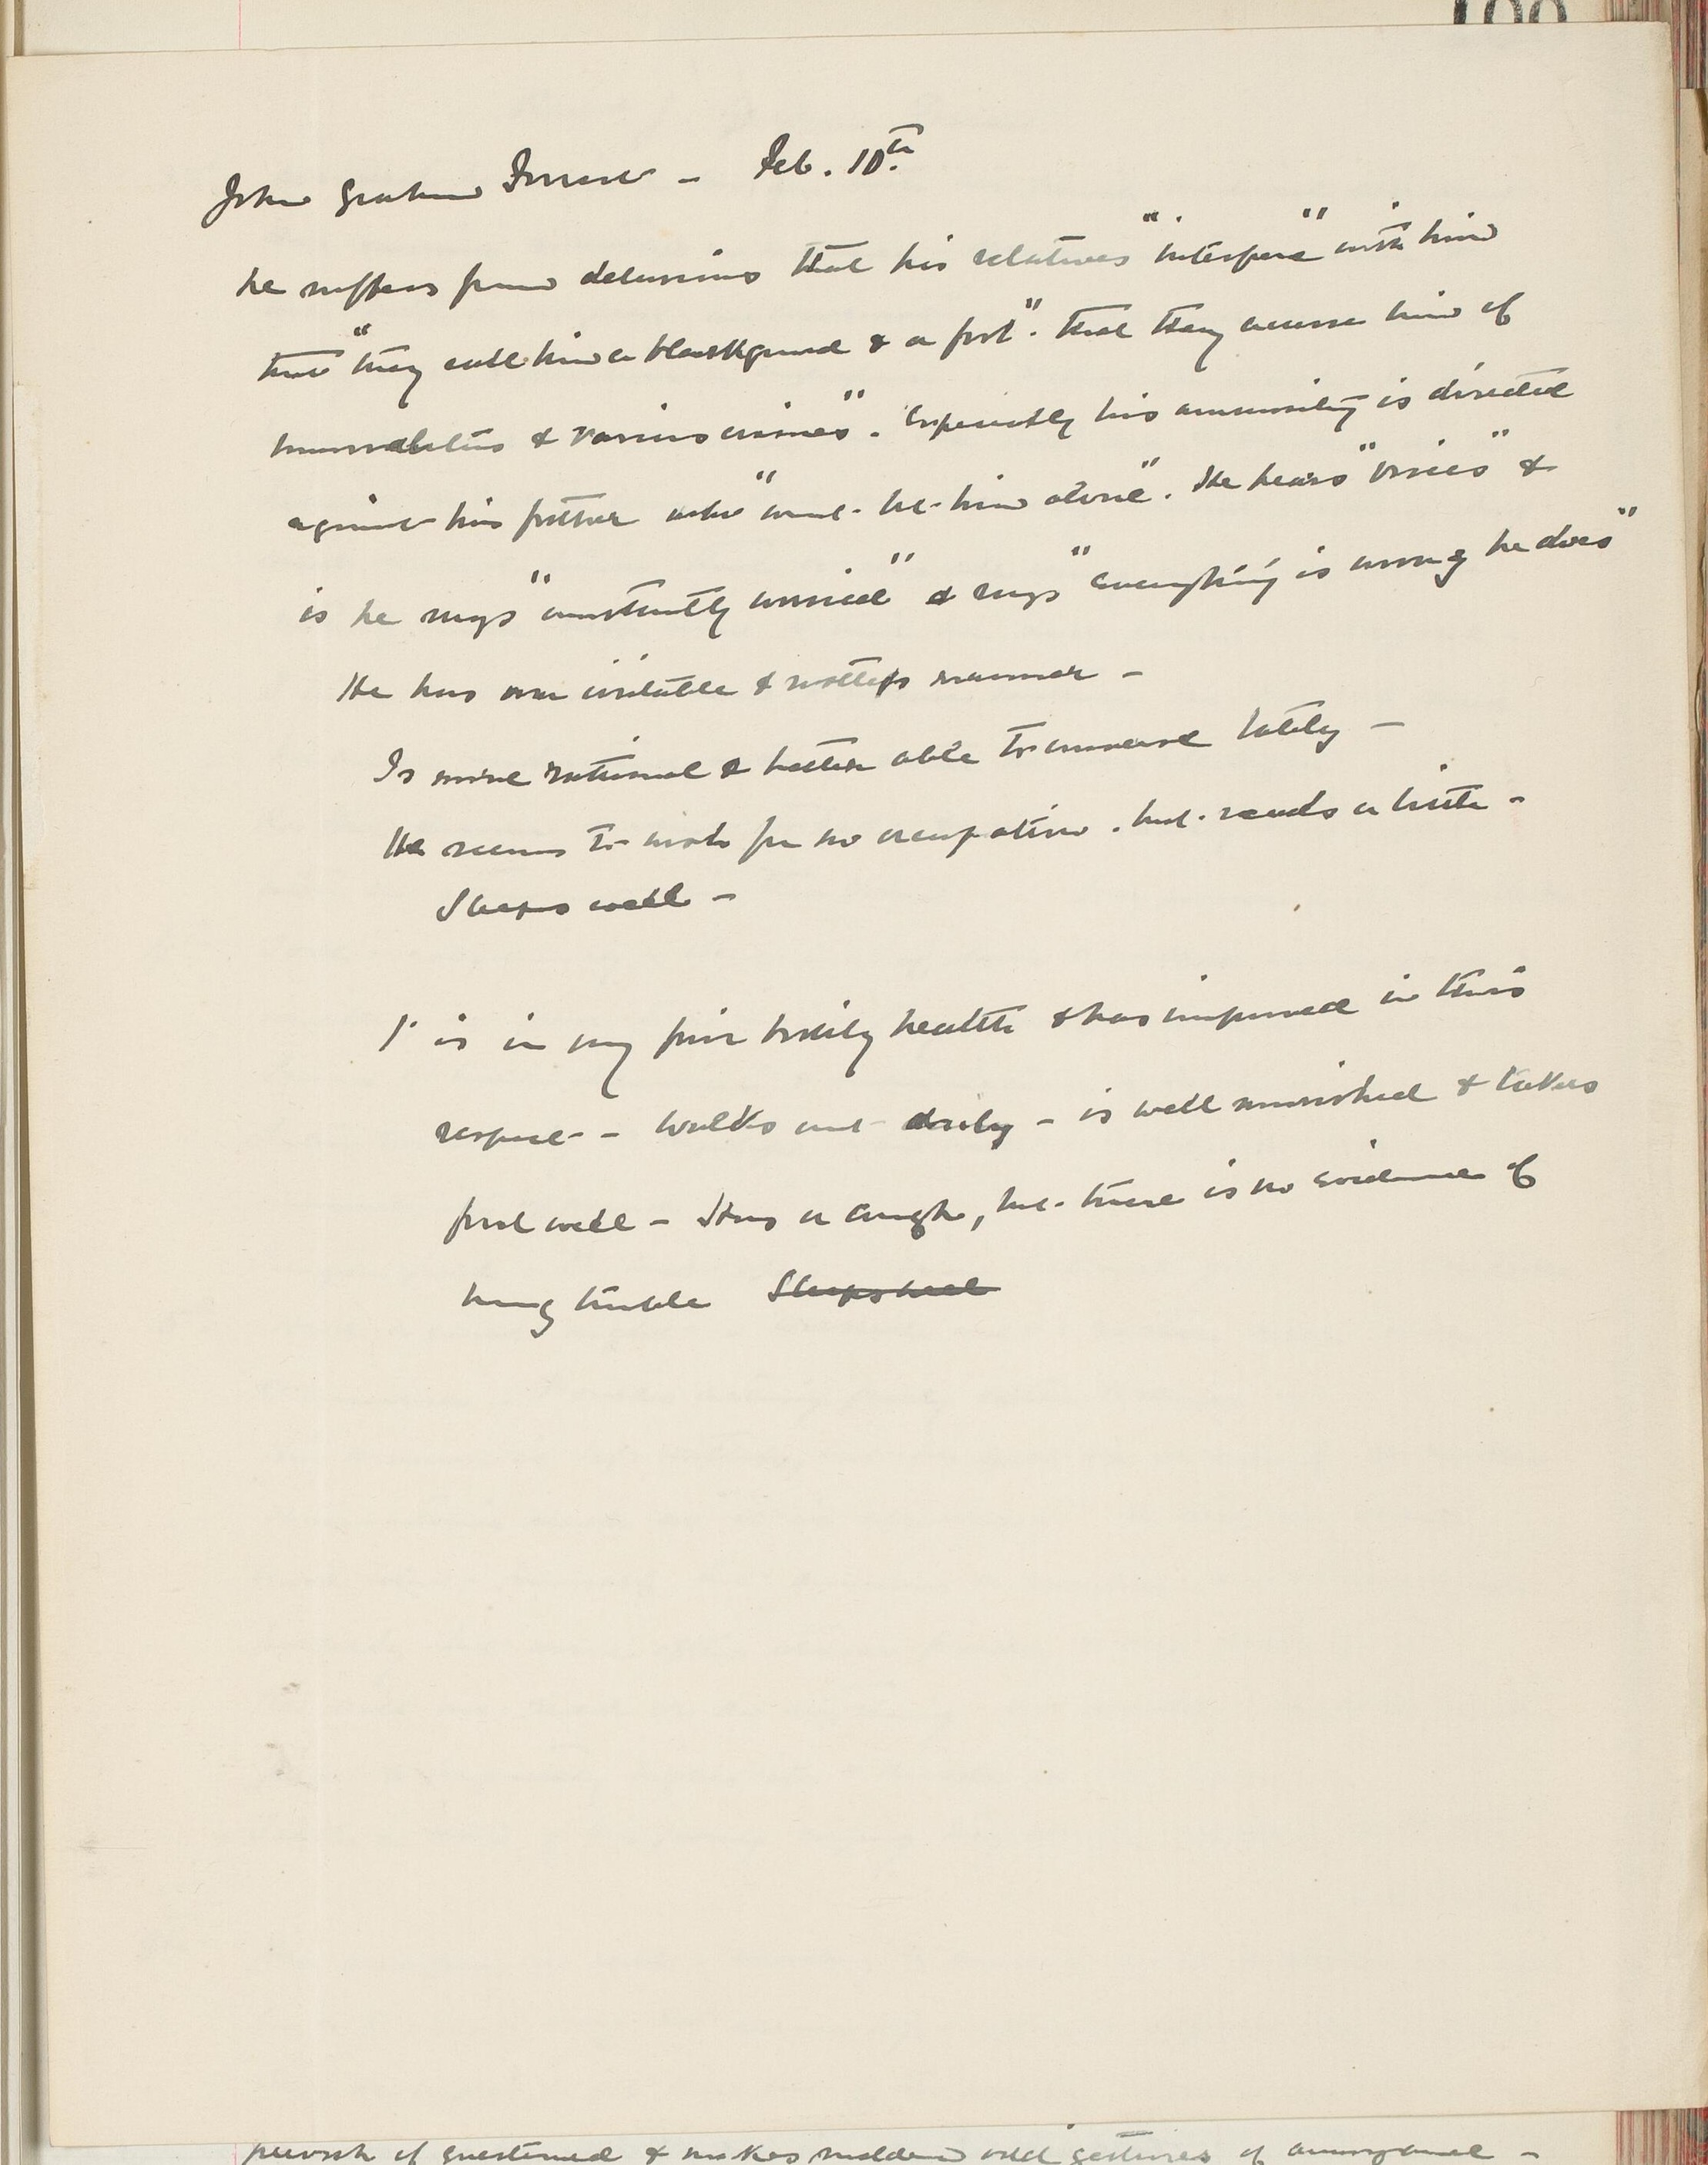 John Graham Forrest - Feb. 10th.
he suffers from delusions that his relatives "interfere" with him
that "they call him a blackguard & a fool". that they accuse him of
immoralities & various crimes". Especially his animosity is directed
against his father who "won't let him alone". He hears "voices" &
is he says "constantly worried" & says "everything is wrong he does"
He has an irritable & restless manner -
Is more rational & better able to converse lately -
He seems to wish for no occupation. but reads a little -
Sleeps well -
is in very fair bodily health & has improved in this
respect - walks out daily - is well nourished & takes
food well - Has a cough, but there is no evidence of
lung trouble Sleeps well
peevish if questioned & makes sudden odd gestures of annoyance -